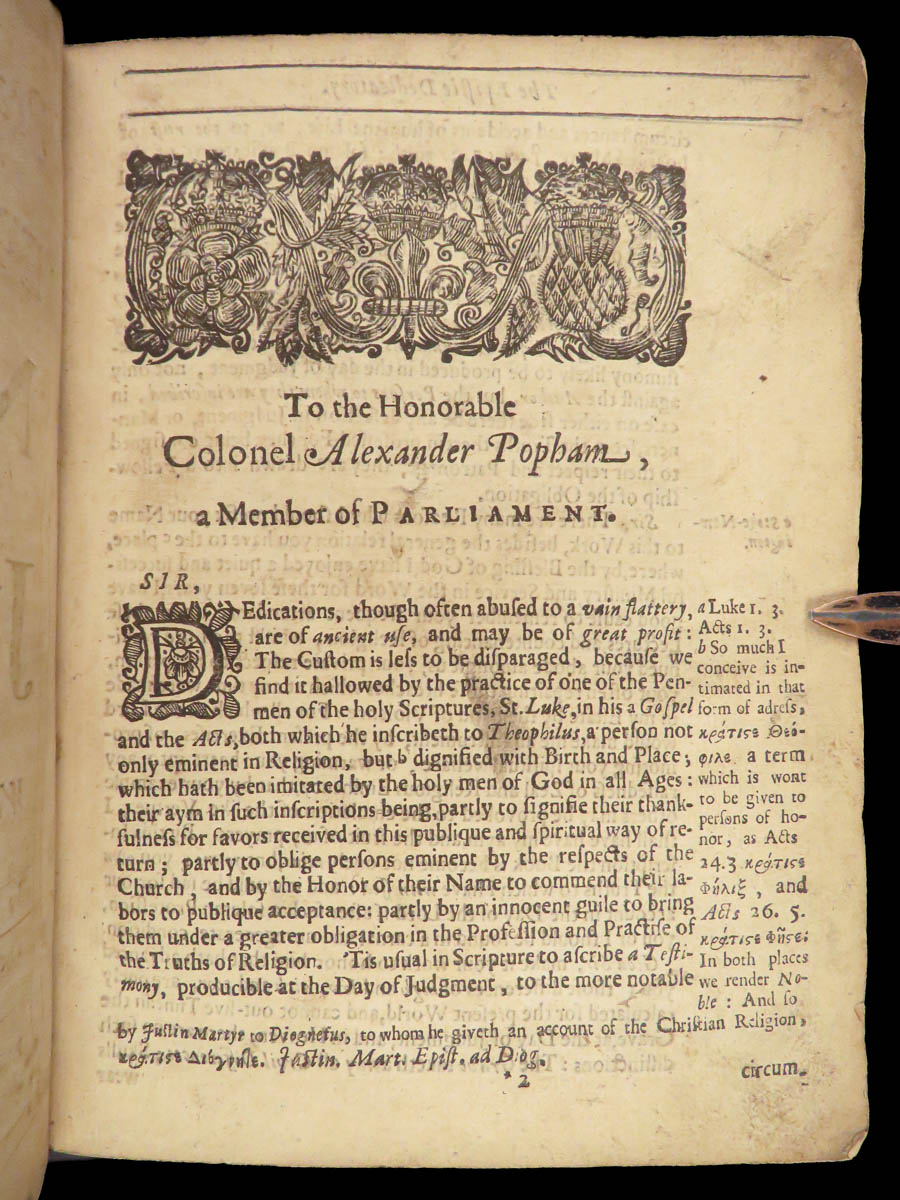 To the Honorable
Colonel Alexander Popham,
a Member of PARLIAMENT.
SIR,
DEdications, though often abused to a vain flattery,
are of ancient use, and may be of great profit:
The Custom is less to be disparaged, because we
find it hallowed by the practice of one of the Pen-
men of the holy Scriptures, St. Luke, in his a Gospel
and the Acts, both which he inscribeth to Theophilus, a person not
only eminent in Religion, but b dignified with Birth and Place;
which hath been imitated by the holy men of God in all Ages:
their aym in such inscriptions being, partly to signifie their thank-
fulness for favors received in this publique and spiritual way of re-
turn; partly to oblige persons eminent by the respects of the
Church, and by the Honor of their Name to commend their la-
bors to publique acceptance: partly by an innocent guile to bring
them under a greater obligation in the Profession and Practise of
the Truths of Religion. 'Tis usual in Scripture to ascribe a Testi-
mony, producible at the Day of Judgment, to the more notable
a Luke 1. 3.
Acts 1. 3.
b So much I
conceive is in-
timated in that
form of adress,
κράτιςε Θεό-
φιλε a term
which is wont
to be given to
persons of ho-
nor, as Acts
24.3 κράτιςε
Φῆλιξ, and
Acts 26. 5.
κράτιςε Φῆςε:
In both places
we render No-
ble: And so
by Justin Martyr to Diognetus, to whom he giveth an account of the Christian Religion,
κράτιςε Διόγνητε. Justin. Mart. Epist. ad Diog.
* 2
circum-